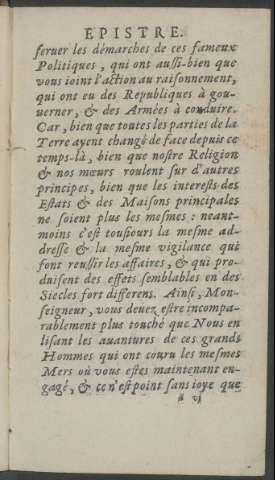 EPISTRE.
seruer les démarches de ces fameux
Politiques, qui ont aussi-bien que
vous ioint l'action au raisonnement,
qui ont eu des Republiques à gou-
uerner, & des Armées à conduire.
Car, bien que toutes les parties de la
Terre ayent changé de face depuis ce
temps-là, bien que nostre Religion
& nos mœurs roulent sur d'autres
principes, bien que les interests des
Estats & des Maisons principales
ne soient plus les mesmes: neant-
moins c'est tousiours la mesme ad-
dresse & la mesme vigilance qui
font reussir les affaires, & qui pro-
duisent des effets semblables en des
Siecles fort differens. Ainsi, Mon-
seigneur, vous deuez estre incompa-
rablement plus touché que Nous en
lisant les auantures de ces grands
Hommes qui ont couru les mesmes
Mers où vous estes maintenant en-
gagé, & ce n'est point sans ioye que
ã vj